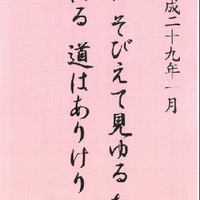 成二十九年一月
そびえて見ゆる
る 道はありけり